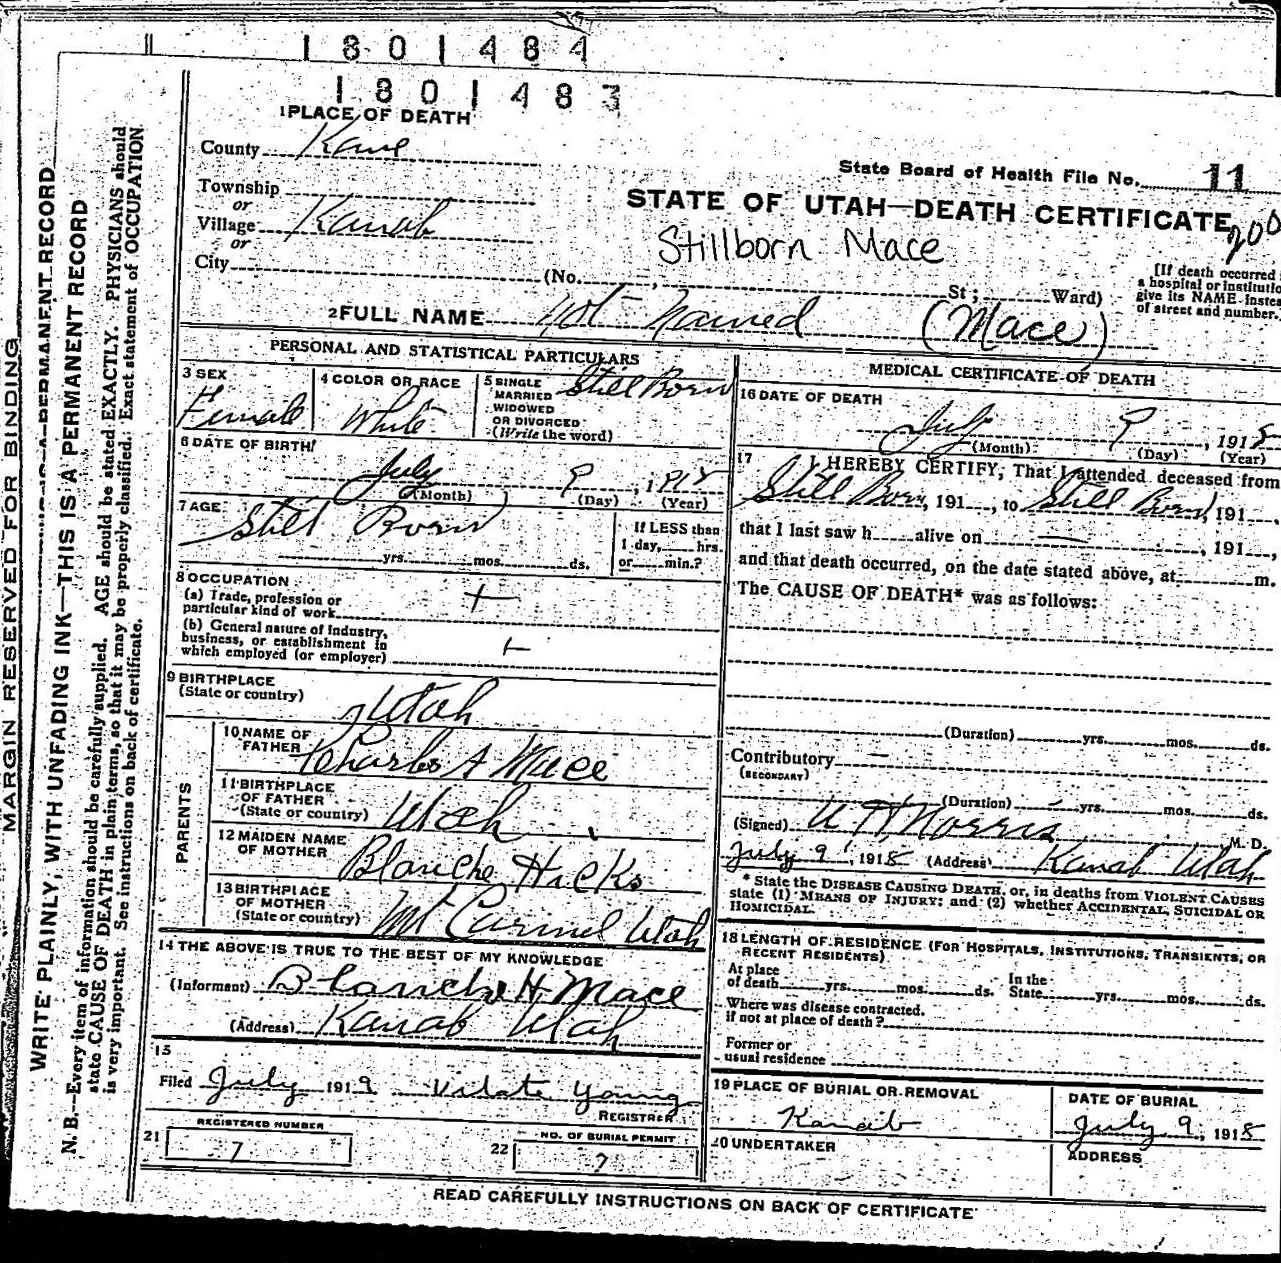 1801484
1801483
1 PLACE OF DEATH
County Kane
State Board of Health File No. 11
Township
or
Village Kanab
or
City
STATE OF UTAH—DEATH CERTIFICATE
Stillborn Mace
(No. St; Ward)
[If death occurred
a hospital or institutio
give its NAME instea
of street and number.
2 FULL NAME not named (Mace)
PERSONAL AND STATISTICAL PARTICULARS
3 SEX
Female
4 COLOR OR RACE
White
5 SINGLE
MARRIED
WIDOWED
OR DIVORCED
(Write the word)
Still Born
6 DATE OF BIRTH
July 9, 1918
(Month) (Day) (Year)
7 AGE
Still Born
yrs. mos. ds.
If LESS than
1 day, hrs.
or min.?
8 OCCUPATION
(a) Trade, profession or
particular kind of work
(b) General nature of industry,
business, or establishment in
which employed (or employer)
9 BIRTHPLACE
(State or country)
Utah
PARENTS
10 NAME OF
FATHER
Charles A Mace
11 BIRTHPLACE
OF FATHER
(State or country)
Utah
12 MAIDEN NAME
OF MOTHER
Blanche Hicks
13 BIRTHPLACE
OF MOTHER
(State or country)
Mt Carmel Utah
14 THE ABOVE IS TRUE TO THE BEST OF MY KNOWLEDGE
(Informant) Blanche H Mace
(Address) Kanab Utah
15
Filed July 1919 Vilate Young
REGISTRER
REGISTERED NUMBER
21 7
NO. OF BURIAL PERMIT
22 7
MEDICAL CERTIFICATE OF DEATH
16 DATE OF DEATH
July 9, 1918
(Month) (Day) (Year)
17 I HEREBY CERTIFY, That I attended deceased from
Still Born, 191, to Still Born, 191,
that I last saw h alive on , 191,
and that death occurred, on the date stated above, at m.
The CAUSE OF DEATH* was as follows:
(Duration) yrs. mos. ds.
Contributory
(SECONDARY)
(Duration) yrs. mos. ds.
(Signed) Norris M. D.
July 9, 1918 (Address) Kanab Utah
* State the DISEASE CAUSING DEATH, or, in deaths from VIOLENT CAUSES
state (1) MEANS OF INJURY; and (2) whether ACCIDENTAL, SUICIDAL OR
HOMICIDAL.
18 LENGTH OF RESIDENCE (FOR HOSPITALS, INSTITUTIONS, TRANSIENTS, OR
RECENT RESIDENTS)
At place
of death yrs. mos. ds.
In the
State yrs. mos. ds.
Where was disease contracted,
if not at place of death?
Former or
usual residence
19 PLACE OF BURIAL OR REMOVAL
Kanab
DATE OF BURIAL
July 9, 1918
20 UNDERTAKER
ADDRESS
READ CAREFULLY INSTRUCTIONS ON BACK OF CERTIFICATE
MARGIN RESERVED FOR BINDING
WRITE PLAINLY, WITH UNFADING INK—THIS IS A PERMANENT RECORD
N. B.—Every item of information should be carefully supplied. AGE should be stated EXACTLY. PHYSICIANS should
state CAUSE OF DEATH in plain terms, so that it may be properly classified. Exact statement of OCCUPATION
is very important. See instructions on back of certificate.